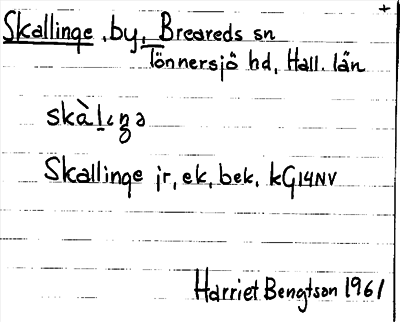 Skallinge, by, Breareds sn +
Tönnersjö hd, Hall. län
skàlıŋə
Skallinge jr, ek, bek. kG14NV
Harriet Bengtson 1961